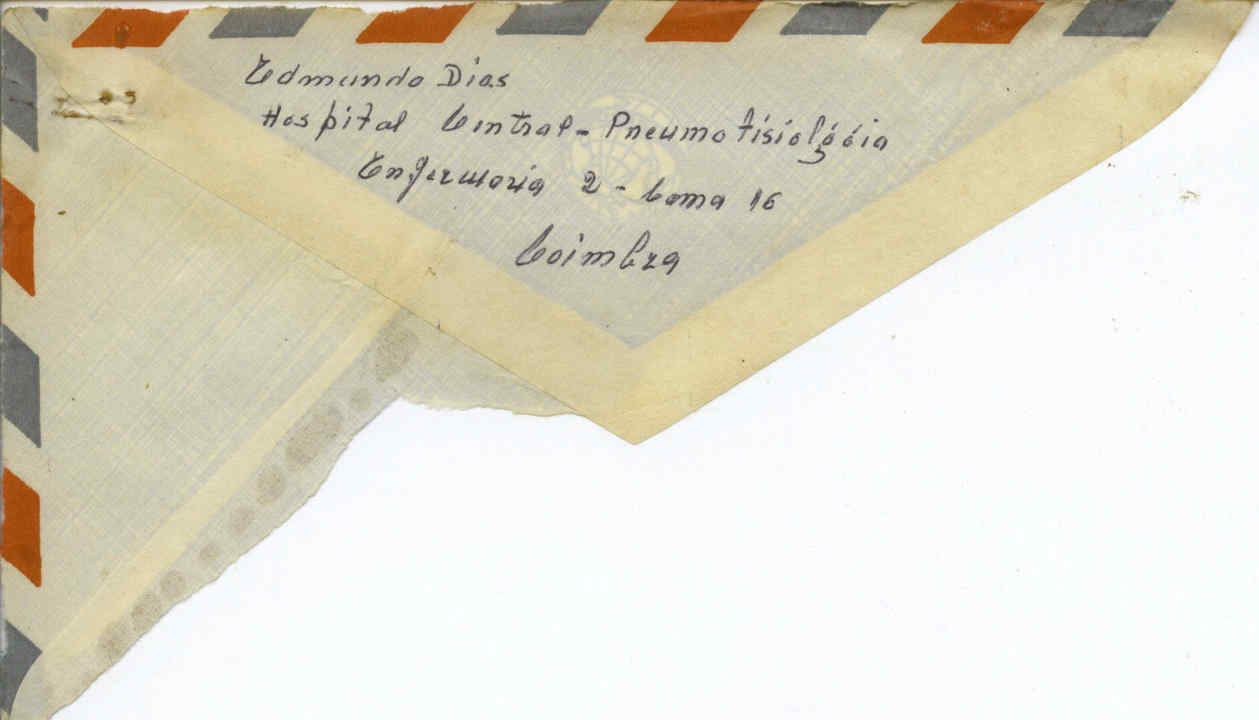 Edmundo Dias
Hospital Central - Pneumotisiológóio
Enfermaria 2 - Cama 16
Coimbra